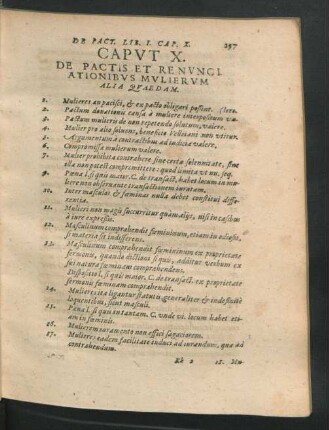 DE PACT. LIB. I. CAP. X. 257
CAPVT X.
DE PACTIS ET RENVNCI
ATIONIBVS MVLIERVM
ALIA QVAEDAM.
1. Mulieres an pacisci, & ex pacto obligari possint.
2. Pactum donationis causa à muliere interpositum
3. Pactum mulieris de non repetendo solutum, valere.
4. Mulier pro alio soluens, beneficio Velleiani non vtitur.
5. Argumentum à contractibus ad iudicia valere.
6. Compromissum mulierum valere.
7. Mulier prohibita contrahere sine certa solennitate, sine
illa non potest compromittere: quod limita vt nu. seq.
9. Pœna l. si quis maior. C. de transact. habet locum in mu-
liere non obseruante transactionem iuratam.
10. Inter masculos & fœminas nulla debet constitui diffe-
rentia.
11. Mulieri non magis succurritur quàm alijs, nisi in casibus
à iure expressis.
12. Masculinum comprehendit fœmininum, etiam in
si materia sit indifferens.
13. Masculinum comprehendit fœmininum ex proprietate
sermonis, quando dictioni si quis, additur verbum ex
sui natura fœminam comprehendens.
Dispositio l. si quis maior. C. de transact. ex proprietate
sermonis fœminam comprehendit.
14. Mulieres ita ligantur statutis generaliter & indefinitè
loquentibus, sicut masculi.
15. Pœna l. si quis in tantam. C. vnde vi. locum habet eti-
am in fœminis.
16. Mulierem iuramento non effici sagaciorem.
17. Mulieres eadem facilitate induci ad iurandum, qua ad
contrahendum.
Kk 2 18. Mu-